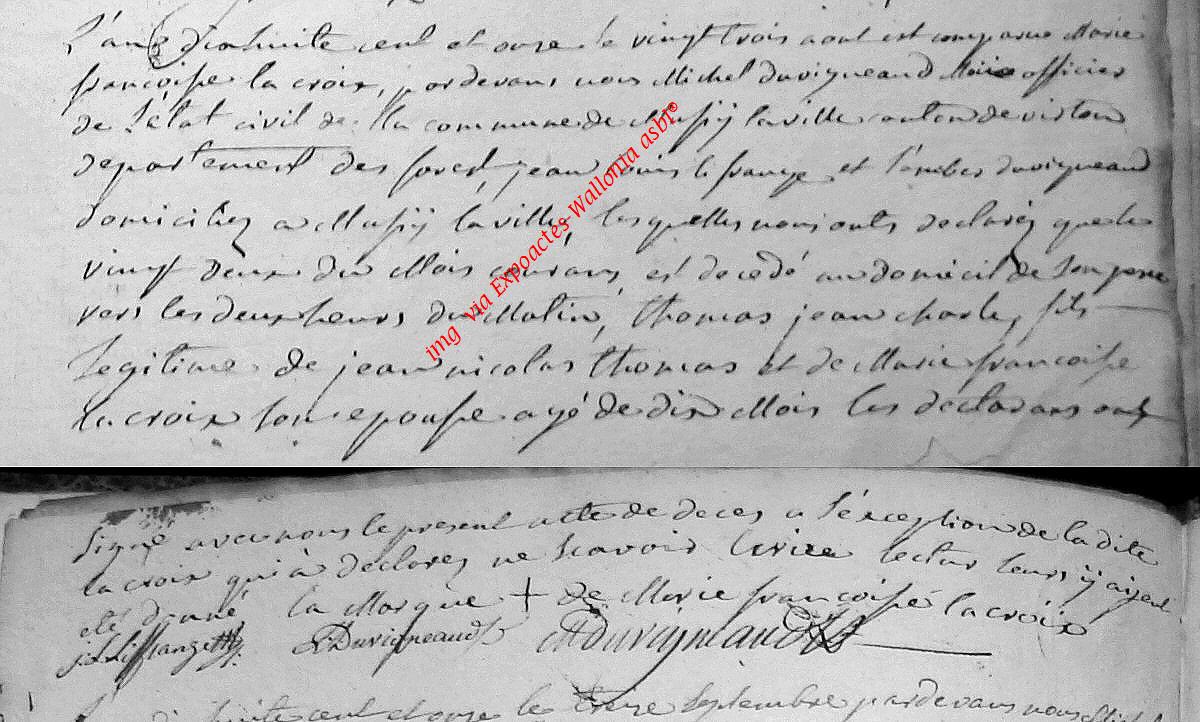 L'an dixhuite cent et onze le vingt trois aout est comparue Marie
francoise la croix, pardevans nous Michel duvigneaud Maire officier
de l'état civil de la commune de Mussÿ la ville canton de virton
departement des forest, jean louis le frange et lambes duvigneaud
domiciliez a Mussÿ la ville, lesquelles nous onts declarez que le
vingt deux du Mois courans, est decedé au domicil de son pere
vers les deux heurs du Matin, thomas jean charles fils
legitime de jean nicolas thomas et de Marie francoise
la croix son epouse agé de dix Mois les declarans onts
signé avec nous le present acte de deces a l'exception de la dite
la croix qui à declarez ne scavoir ecrire lectur leurs ÿ aijent
eté donné la Marque + de Marie francoise la croix
Duvigneaud MDuvigneaud
huite cent et onze le treize Septembre pardevans nous Michel
img via Expoactes-Wallonia asbl®